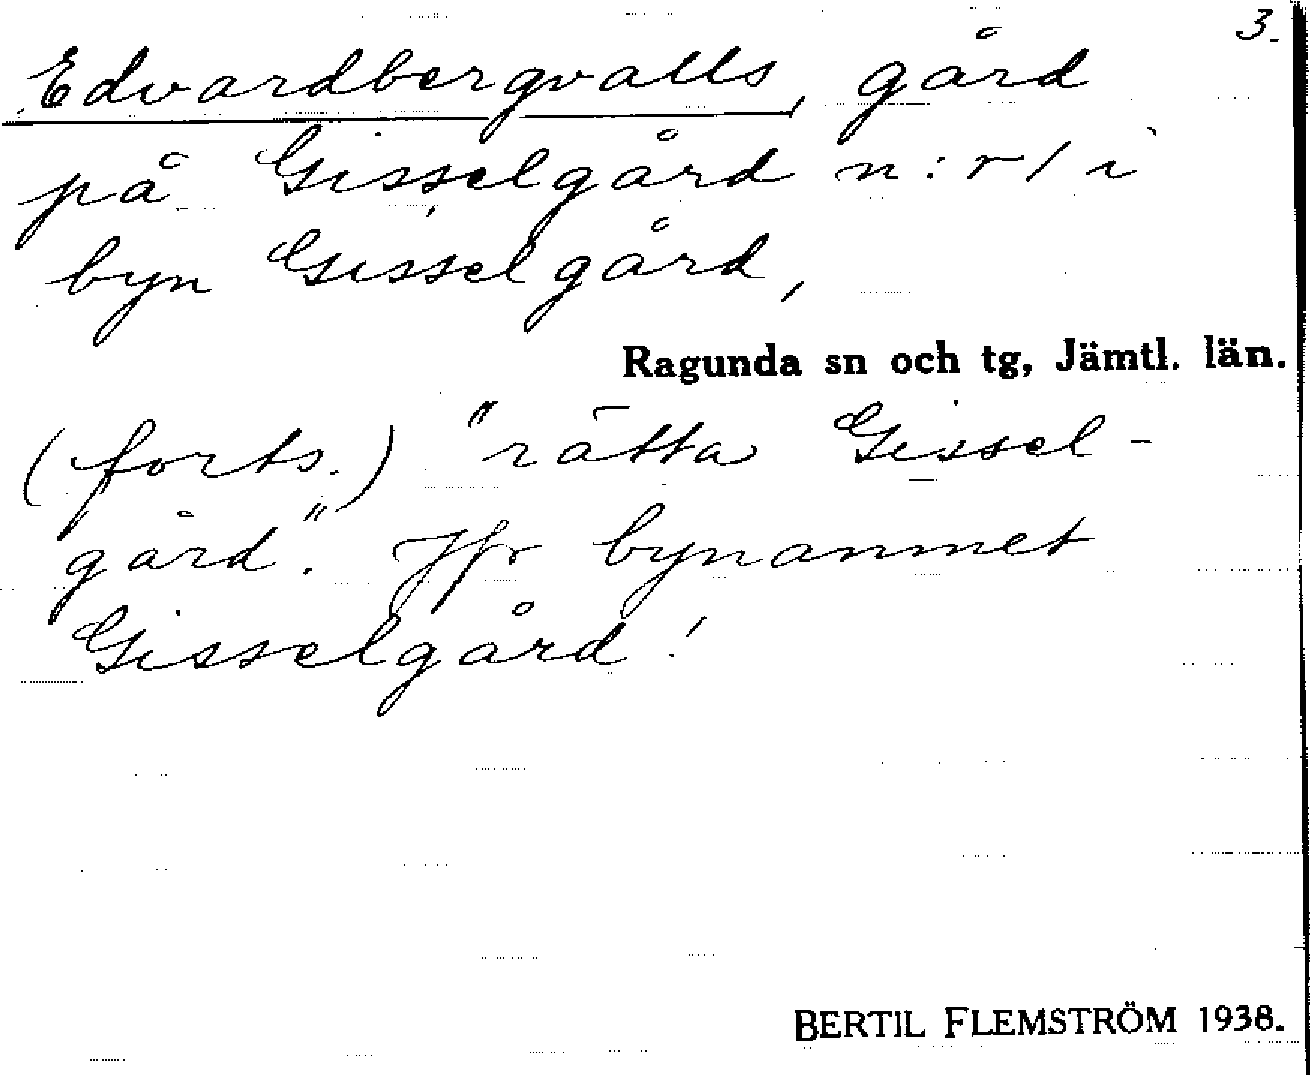 3.
Edvardbergvalls, gård
på Gisselgård n:r 1 i
byn Gisselgård,
Ragunda sn och tg, Jämtl. län.
(forts.) "rätta Gissel-
gård". Jfr bynamnet
Gisselgård!
BERTIL FLEMSTRÖM 1938.